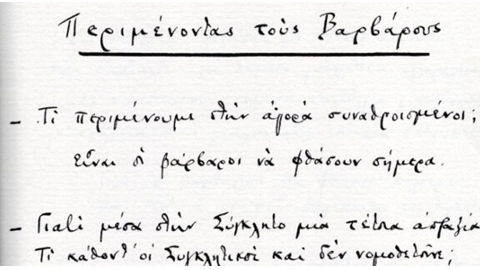 Περιμένοντας τοὺς Βαρβάρους
– Τί περιμένουμε στὴν ἀγορὰ συναθροισμένοι;
Εἶναι οἱ βάρβαροι νὰ φθάσουν σήμερα.
– Γιατί μέσα στὴν Σύγκλητο μιὰ τέτοια ἀπραξία
Τί κάθοντ' οἱ Συγκλητικοὶ καὶ δὲν νομοθετοῦνε;